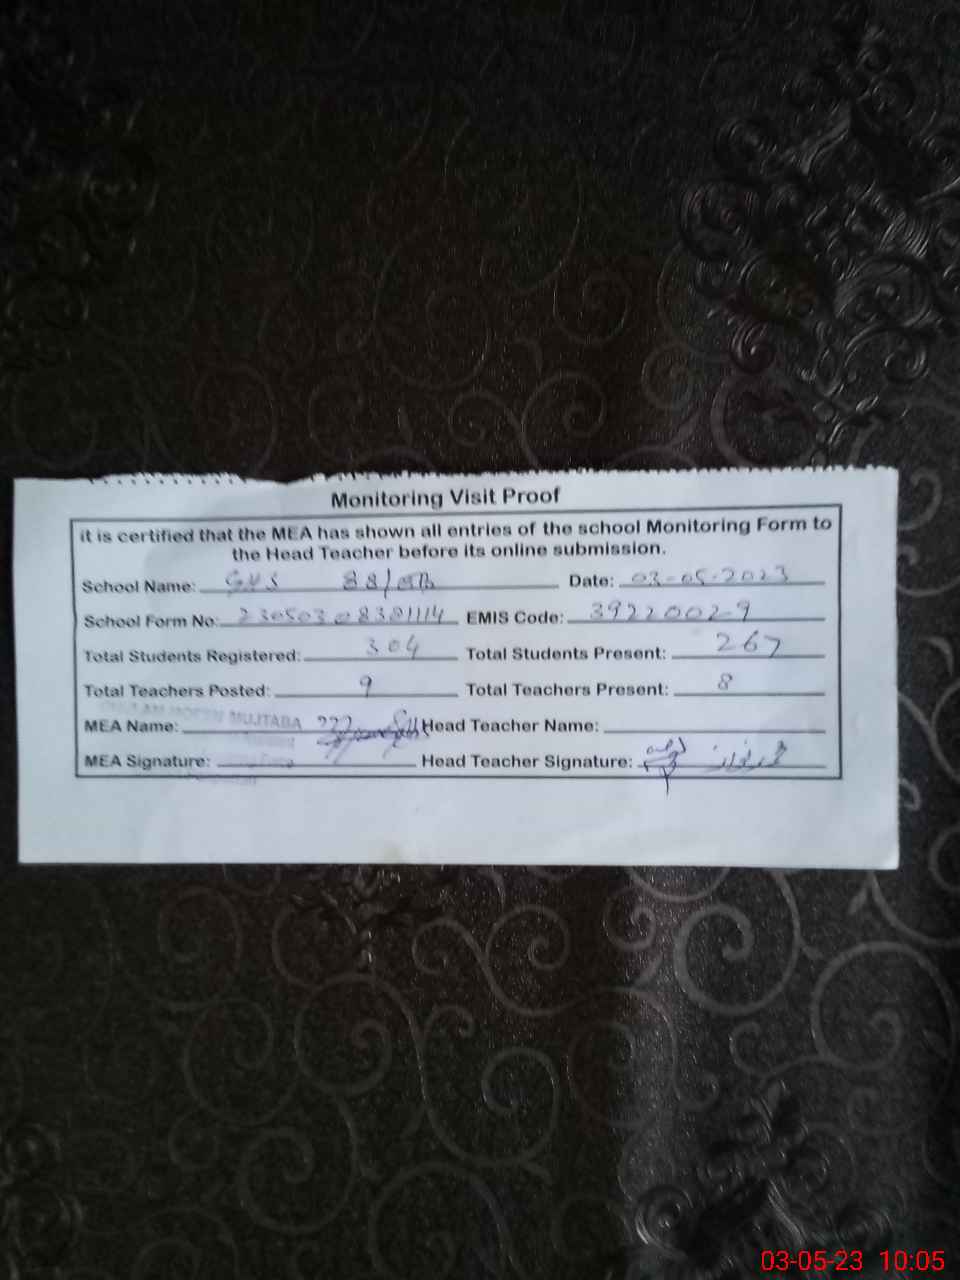 Monitoring Visit Proof
it is certified that the MEA has shown all entries of the school Monitoring Form to
the Head Teacher before its online submission.
School Name: 88/ Date: 03-05-2023
School Form No: 23050308301114 EMIS Code: 39220029
Total Students Registered: 304 Total Students Present: 267
Total Teachers Posted: 9 Total Teachers Present: 8
MEA Name: MUJTABA Head Teacher Name:
MEA Signature: Head Teacher Signature:
03-05-23 10:05